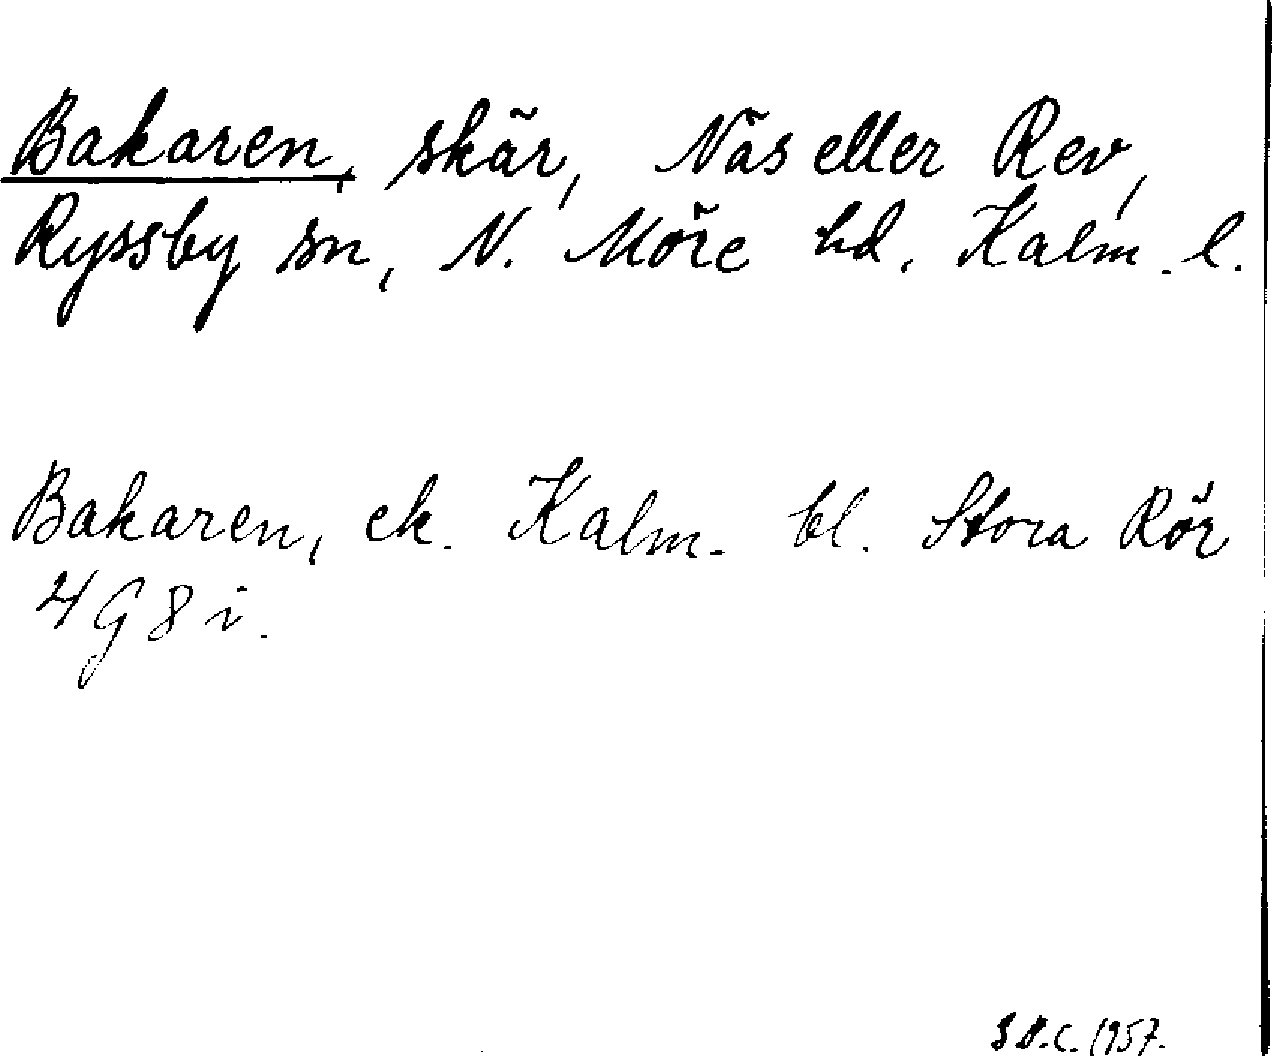 Bakaren, skär, Näs eller Rev,
Ryssby sn, N. Möre hd. Kalm. l.
Bakaren, ek. Kalm. bl. Stora Rör
4G8i.
1957.